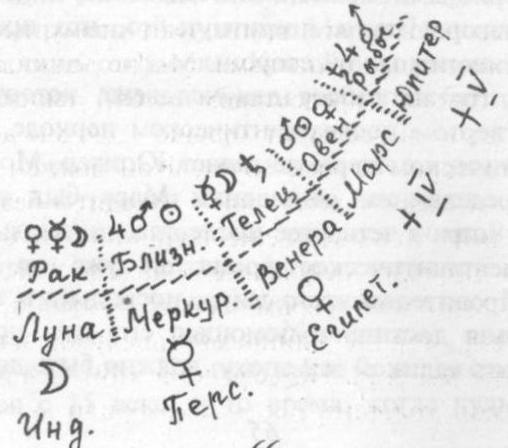 ♀☿☽ ♃♂☉ ☿☽♄ ♂☉♀
Рак Близн. Телец Овен Рыбы
Луна Меркур. Венера Марс Юпитер
☽ ☿ ☉ +IV +V
Инд. Перс. Египет.